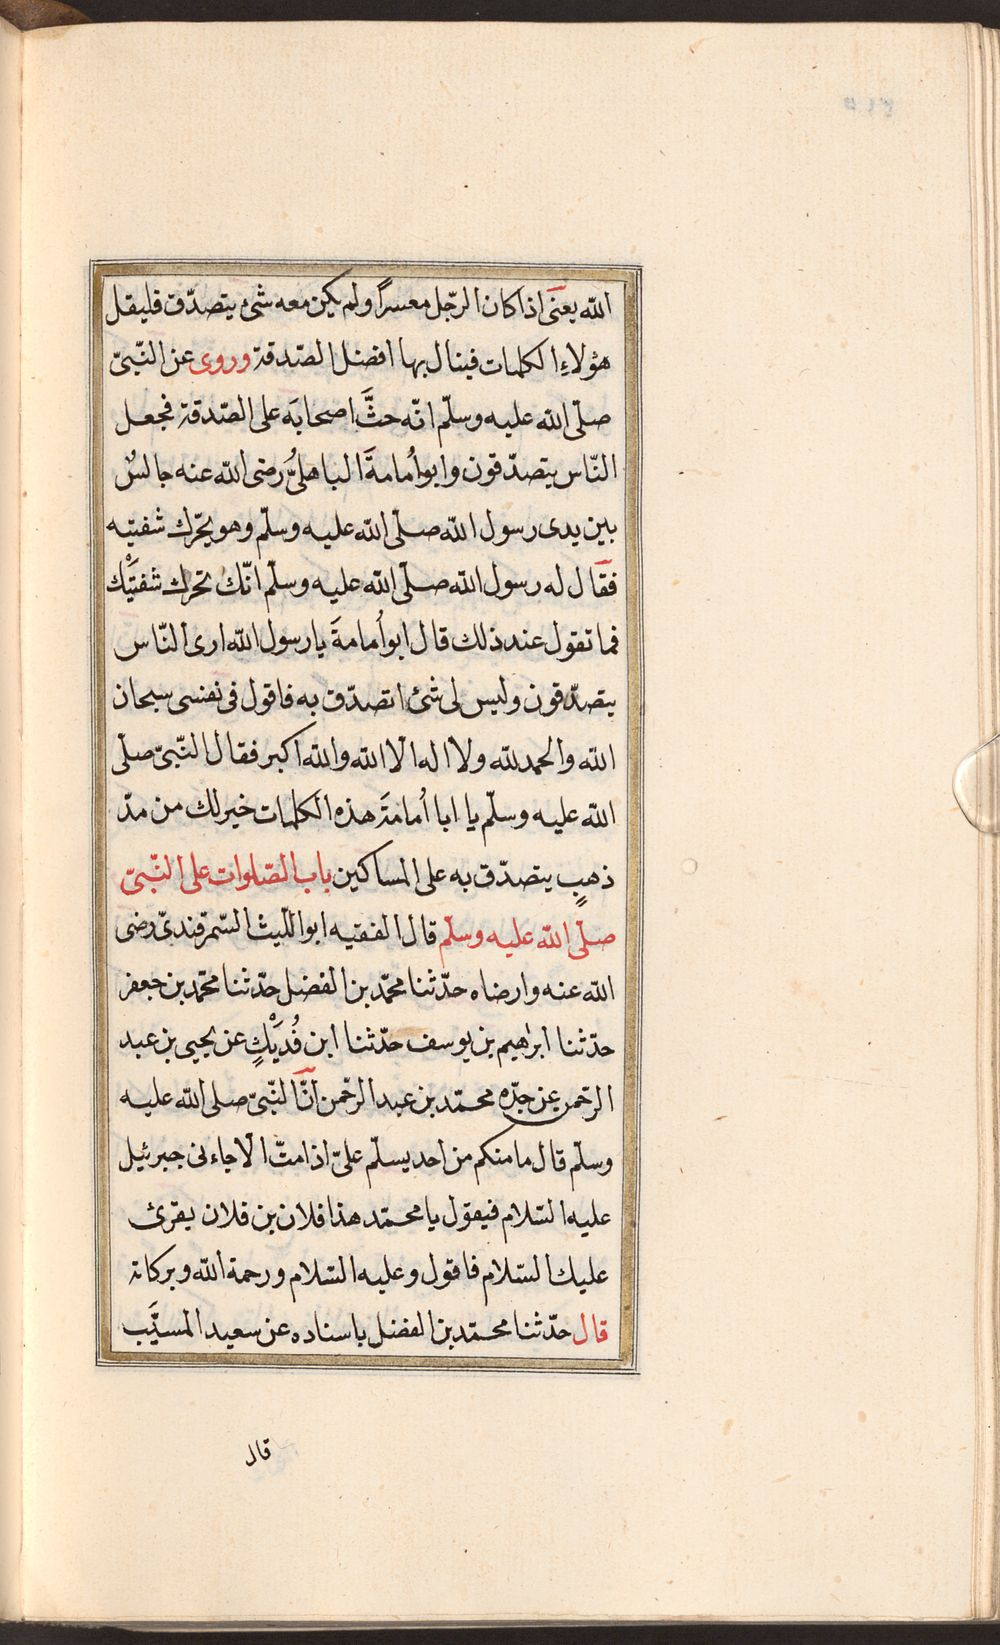 الله يعنى اذا كان الرّجل معسرًا ولم يكن معه شئ يتصدّق فليقل
هؤلاءِ الكلمات فينال بها افضل الصّدقة وروى عن النّبىّ
صلّى الله عليه وسلّم انّه حثَّ اصحابَه على الصّدقة فجعل
النّاس يتصدّقون وابو اُمامةَ الباهلىُّ رضى الله عنه جالسٌ
بين يدى رسول الله صلّى الله عليه وسلّم وهو يحّرك شفتيه
فقال له رسول الله صلّى الله عليه وسلّم انّك تحرك شفتَيْك
فما تقول عند ذلك قال ابو اُمامةَ يا رسول الله ارى النّاس
يتصدّقون وليس لى شئ اتصدّق به فاقول فى نفسى سبحان
الله والحمد لله ولا اله الّا الله والله اكبر فقال النّبىّ صلّى
الله عليه وسلّم يا ابا اُمامةَ هذه الكلمات خير لك من مدّ
ذهبٍ يتصدّق به على المساكين باب الصّلوات على النّبىّ
صلّى الله عليه وسلّم قال الفقيه ابو اللّيث السّمرقندىّ رضى
الله عنه وارضاه حدّثنا محمّد بن الفضل حدّثنا محمّد بن جعفر
حدّثنا ابرهيم بن يوسف حدّثنا ابن فُدَيْكٍ عن يحيى بن عبد
الرّحمن عن جدّه محمّد بن عبد الرّحمن انّ النّبىّ صلى الله عليه
وسلّم قال ما منكم من احد يسلّم علىّ اذا متّ الّا جاءنى جبرئيل
عليه السّلام فيقول يا محمّد هذا فلان بن فلان يقرئ
عليك السّلام فاقول وعليه السّلام ورحمة الله وبركاته
قال حدّثنا محمّد بن الفضل باسناده عن سعيد المسيَّب
قال